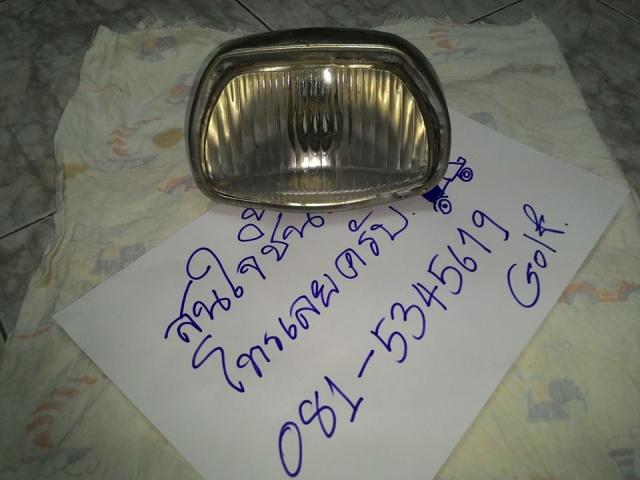 สนใจชิ้น
โทรเลยครับ.
081-5345619
Golf.